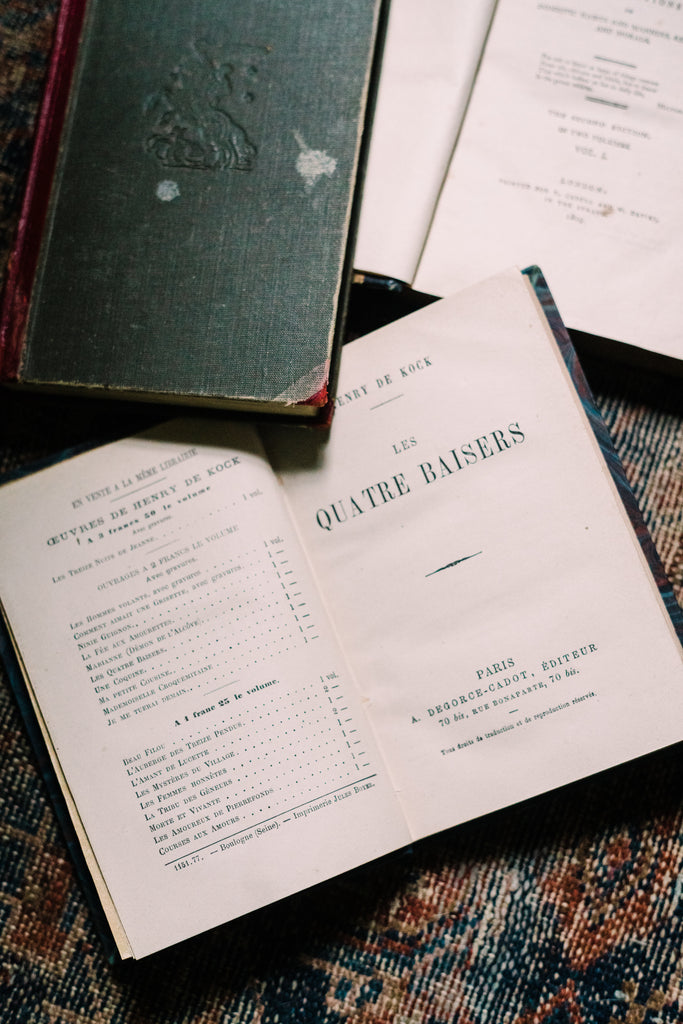 DOMESTIC HABITS AND
AND MORALS.
THE SECOND EDITION,
IN TWO VOLUMES.
VOL. I.
LONDON:
PRINTED FOR T. CADELL AND W. DAVIES,
IN THE STRAND.
EN VENTE A LA MÊME LIBRAIRIE
ŒUVRES DE HENRY DE KOCK
A 3 francs 50 le volume
Avec gravures.
LES TREIZE NUITS DE JEANNE. 1 vol.
OUVRAGES A 2 FRANCS LE VOLUME
Avec gravures.
LES HOMMES VOLANTS, avec gravures 1 vol.
COMMENT AIMAIT UNE GRISETTE, avec gravures. 1 —
NINIE GUIGNON. 1 —
LA FÉE AUX AMOURETTES. 1 —
MARIANNE (DÉMON DE L'ALCÔVE). 1 —
LES QUATRE BAISERS. 1 —
UNE COQUINE. 1 —
MA PETITE COUSINE. 1 —
MADEMOISELLE CROQUEMITAINE 1 —
JE ME TUERAI DEMAIN. 1 —
A 1 franc 25 le volume.
BEAU FILOU 1 vol.
L'AUBERGE DES TREIZE PENDUS. 2 —
L'AMANT DE LUCETTE 1 —
LES MYSTÈRES DU VILLAGE 2 —
LES FEMMES HONNÊTES 1 —
LA TRIBU DES GÊNEURS 1 —
MORTE ET VIVANTE 1 —
LES AMOUREUX DE PIERREFONDS 1 —
COURSES AUX AMOURS 1 —
1151.77. — Boulogne (Seine). — Imprimerie JULES BOYER.
HENRY DE KOCK
LES
QUATRE BAISERS
PARIS
A. DEGORCE-CADOT, ÉDITEUR
70 bis, RUE BONAPARTE, 70 bis.
Tous droits de traduction et de reproduction réservés.